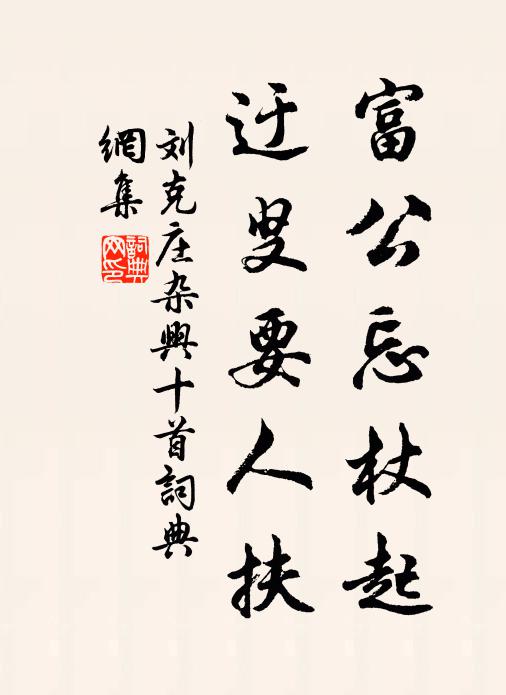 富公忘杖起
迂叟要人扶
刘克庄杂興十首詞典
網集
詞典
网印